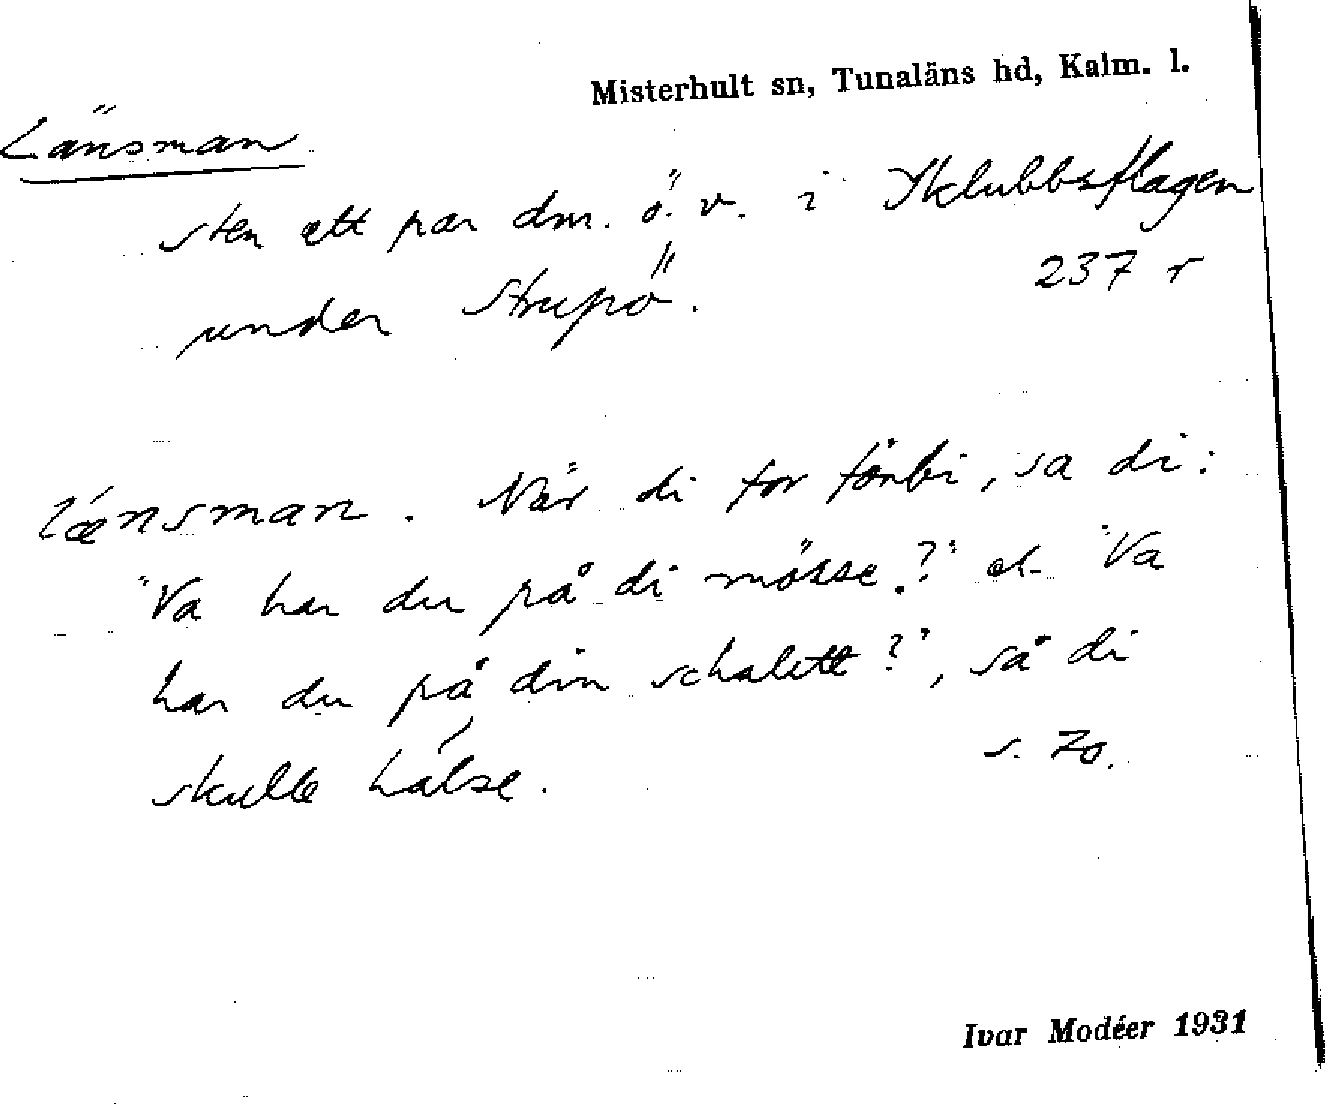 Misterhult sn, Tunaläns hd, Kalm. l.
Länsman
sten ett par dm. ö. v. i Yklubbsflagen
under Strupö. 237 r
lænsman. När di for förbi, sa di:
"Va har du på di mösse?" el. "Va
har du på din schalett?", så di
skulle hälse. s. 70.
Ivar Modéer 1931